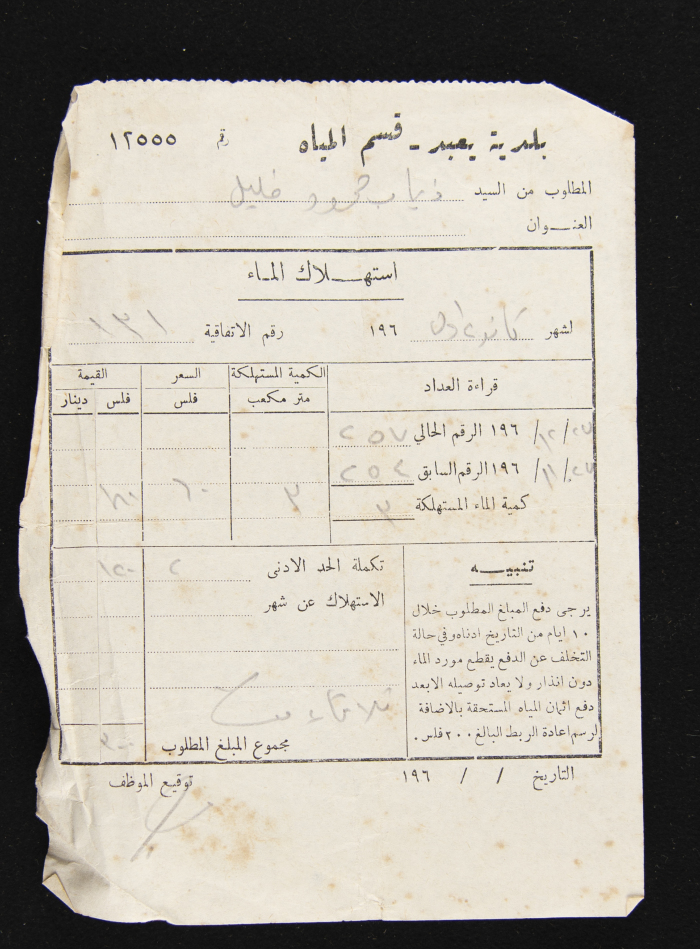 بلدية يعبد - قسم المياه رقم ١٢٥٥٥
المطلوب من السيد ذياب حمود خليل
العنـــوان
استهـــلاك المـاء
لشهر كانون اول ١٩٦ رقم الاتفاقية ١٣١
قراءة العداد الكمية المستهلكة السعر القيمة
متر مكعب فلس فلس دينار
٢٧/ ١٢/ ١٩٦ الرقم الحالي ٢٥٧
٢٧/ ١١/ ١٩٦ الرقم السابق ٢٥٤
كمية الماء المستهلكة ٣ ٣ ٦٠ ١٨٠
تنبيـــه
يرجى دفع المبلغ المطلوب خلال
١٠ ايام من التاريخ ادناه وفي حالة
التخلف عن الدفع يقطع مورد الماء
دون انذار ولا يعاد توصيله الا بعد
دفع اثمان المياه المستحقة بالاضافة
لرسم اعادة الربط البالغ ٢٠٠ فلس .
تكملة الحد الادنى ٢ ١٢٠
الاستهلاك عن شهر
مجموع المبلغ المطلوب ٣٠٠
التاريخ / / ١٩٦ توقيع الموظف